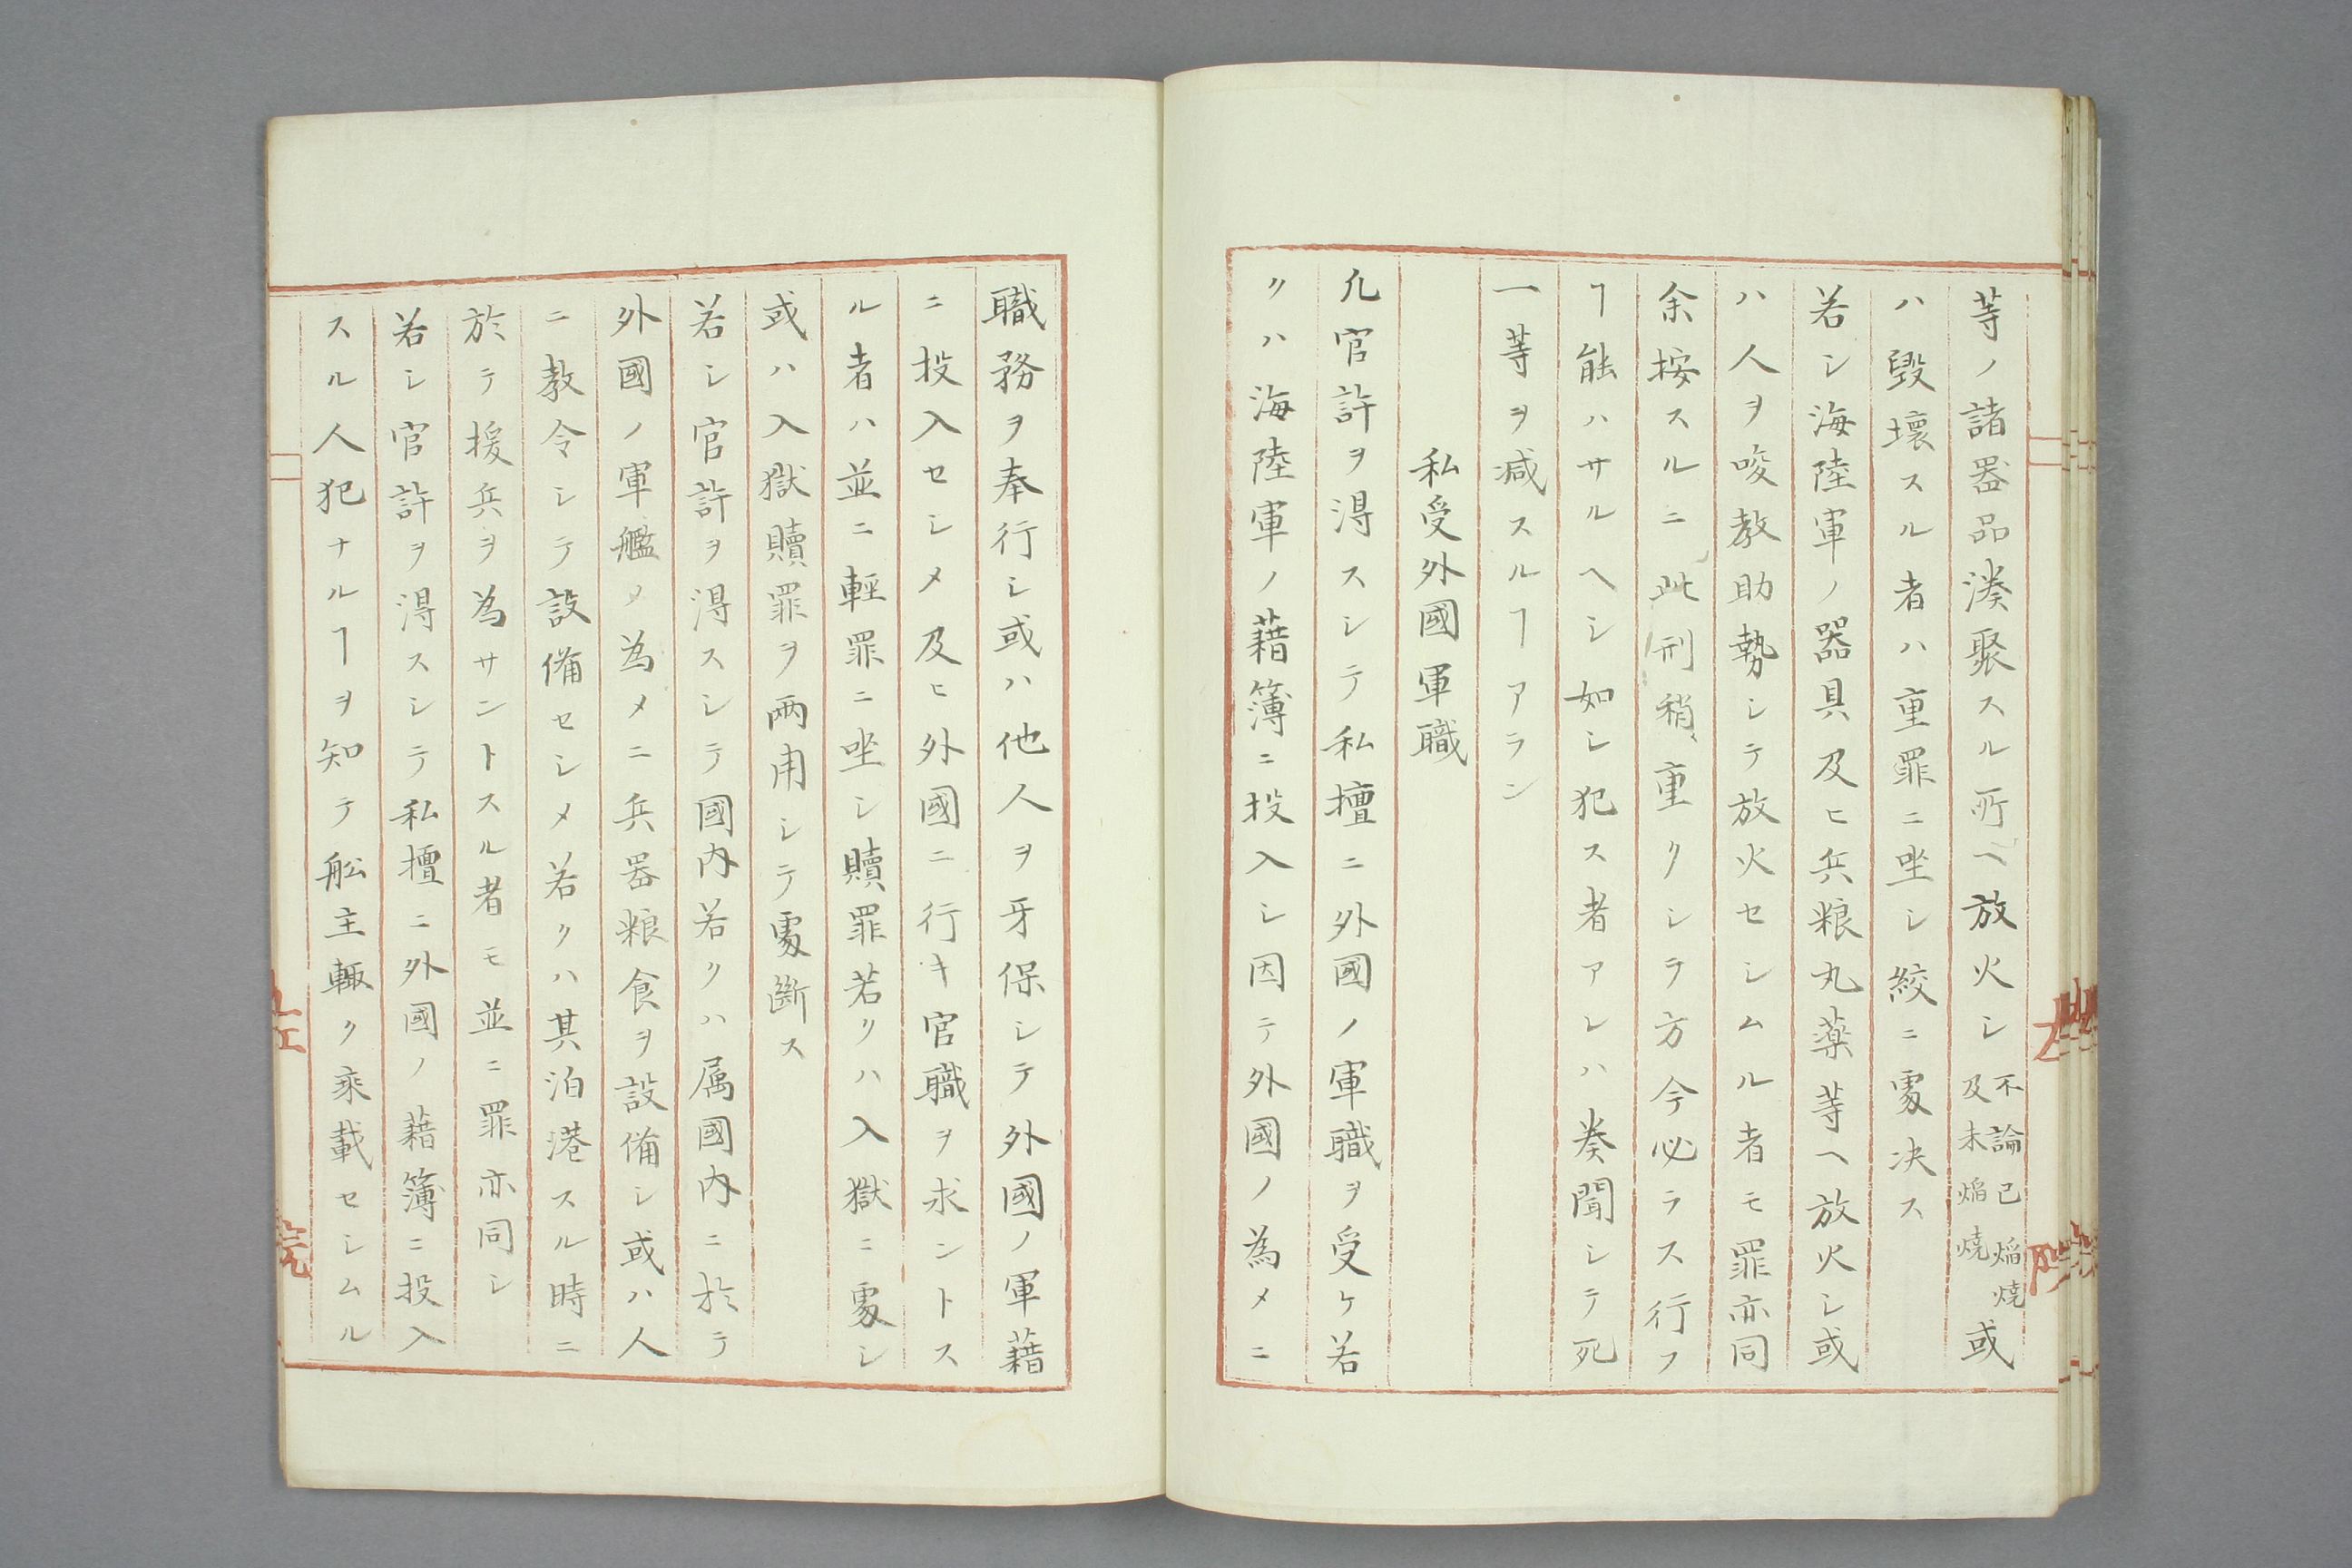 等ノ諸器品湊聚スル所ヘ放火シ不論已焔燒及未焔燒或
ハ毀壞スル者ハ重罪ニ坐シ絞ニ處决ス
若シ海陸軍ノ器具及ヒ兵粮丸薬等ヘ放火シ或
ハ人ヲ唆教助勢シテ放火セシムル者モ罪亦同
余按スルニ此刑稍重クシテ方今必ラス行フ
ヿ能ハサルヘシ如シ犯ス者アレハ奏聞シテ死
一等ヲ減スルヿアラン
私受外國軍職
凢官許ヲ淂スシテ私擅ニ外國ノ軍職ヲ受ケ若
クハ海陸軍ノ藉簿ニ投入シ因テ外國ノ為メニ
職務ヲ奉行シ或ハ他人ヲ牙保シテ外國ノ軍藉
ニ投入セシメ及ヒ外國ニ行キ官職ヲ求ントス
ル者ハ並ニ輕罪ニ坐シ贖罪若クハ入獄ニ處シ
或ハ入獄贖罪ヲ兩用シテ處斷ス
若シ官許ヲ淂スシテ國内若クハ属國内ニ於テ
外國ノ軍艦ノ為メニ兵器粮食ヲ設備シ或ハ人
ニ教令シテ設備セシメ若クハ其泊港スル時ニ
於テ援兵ヲ為サントスル者モ並ニ罪亦同シ
若シ官許ヲ淂スシテ私擅ニ外國ノ藉簿ニ投入
スル人犯ナルヿヲ知テ舩主輙ク乘載セシムル
院